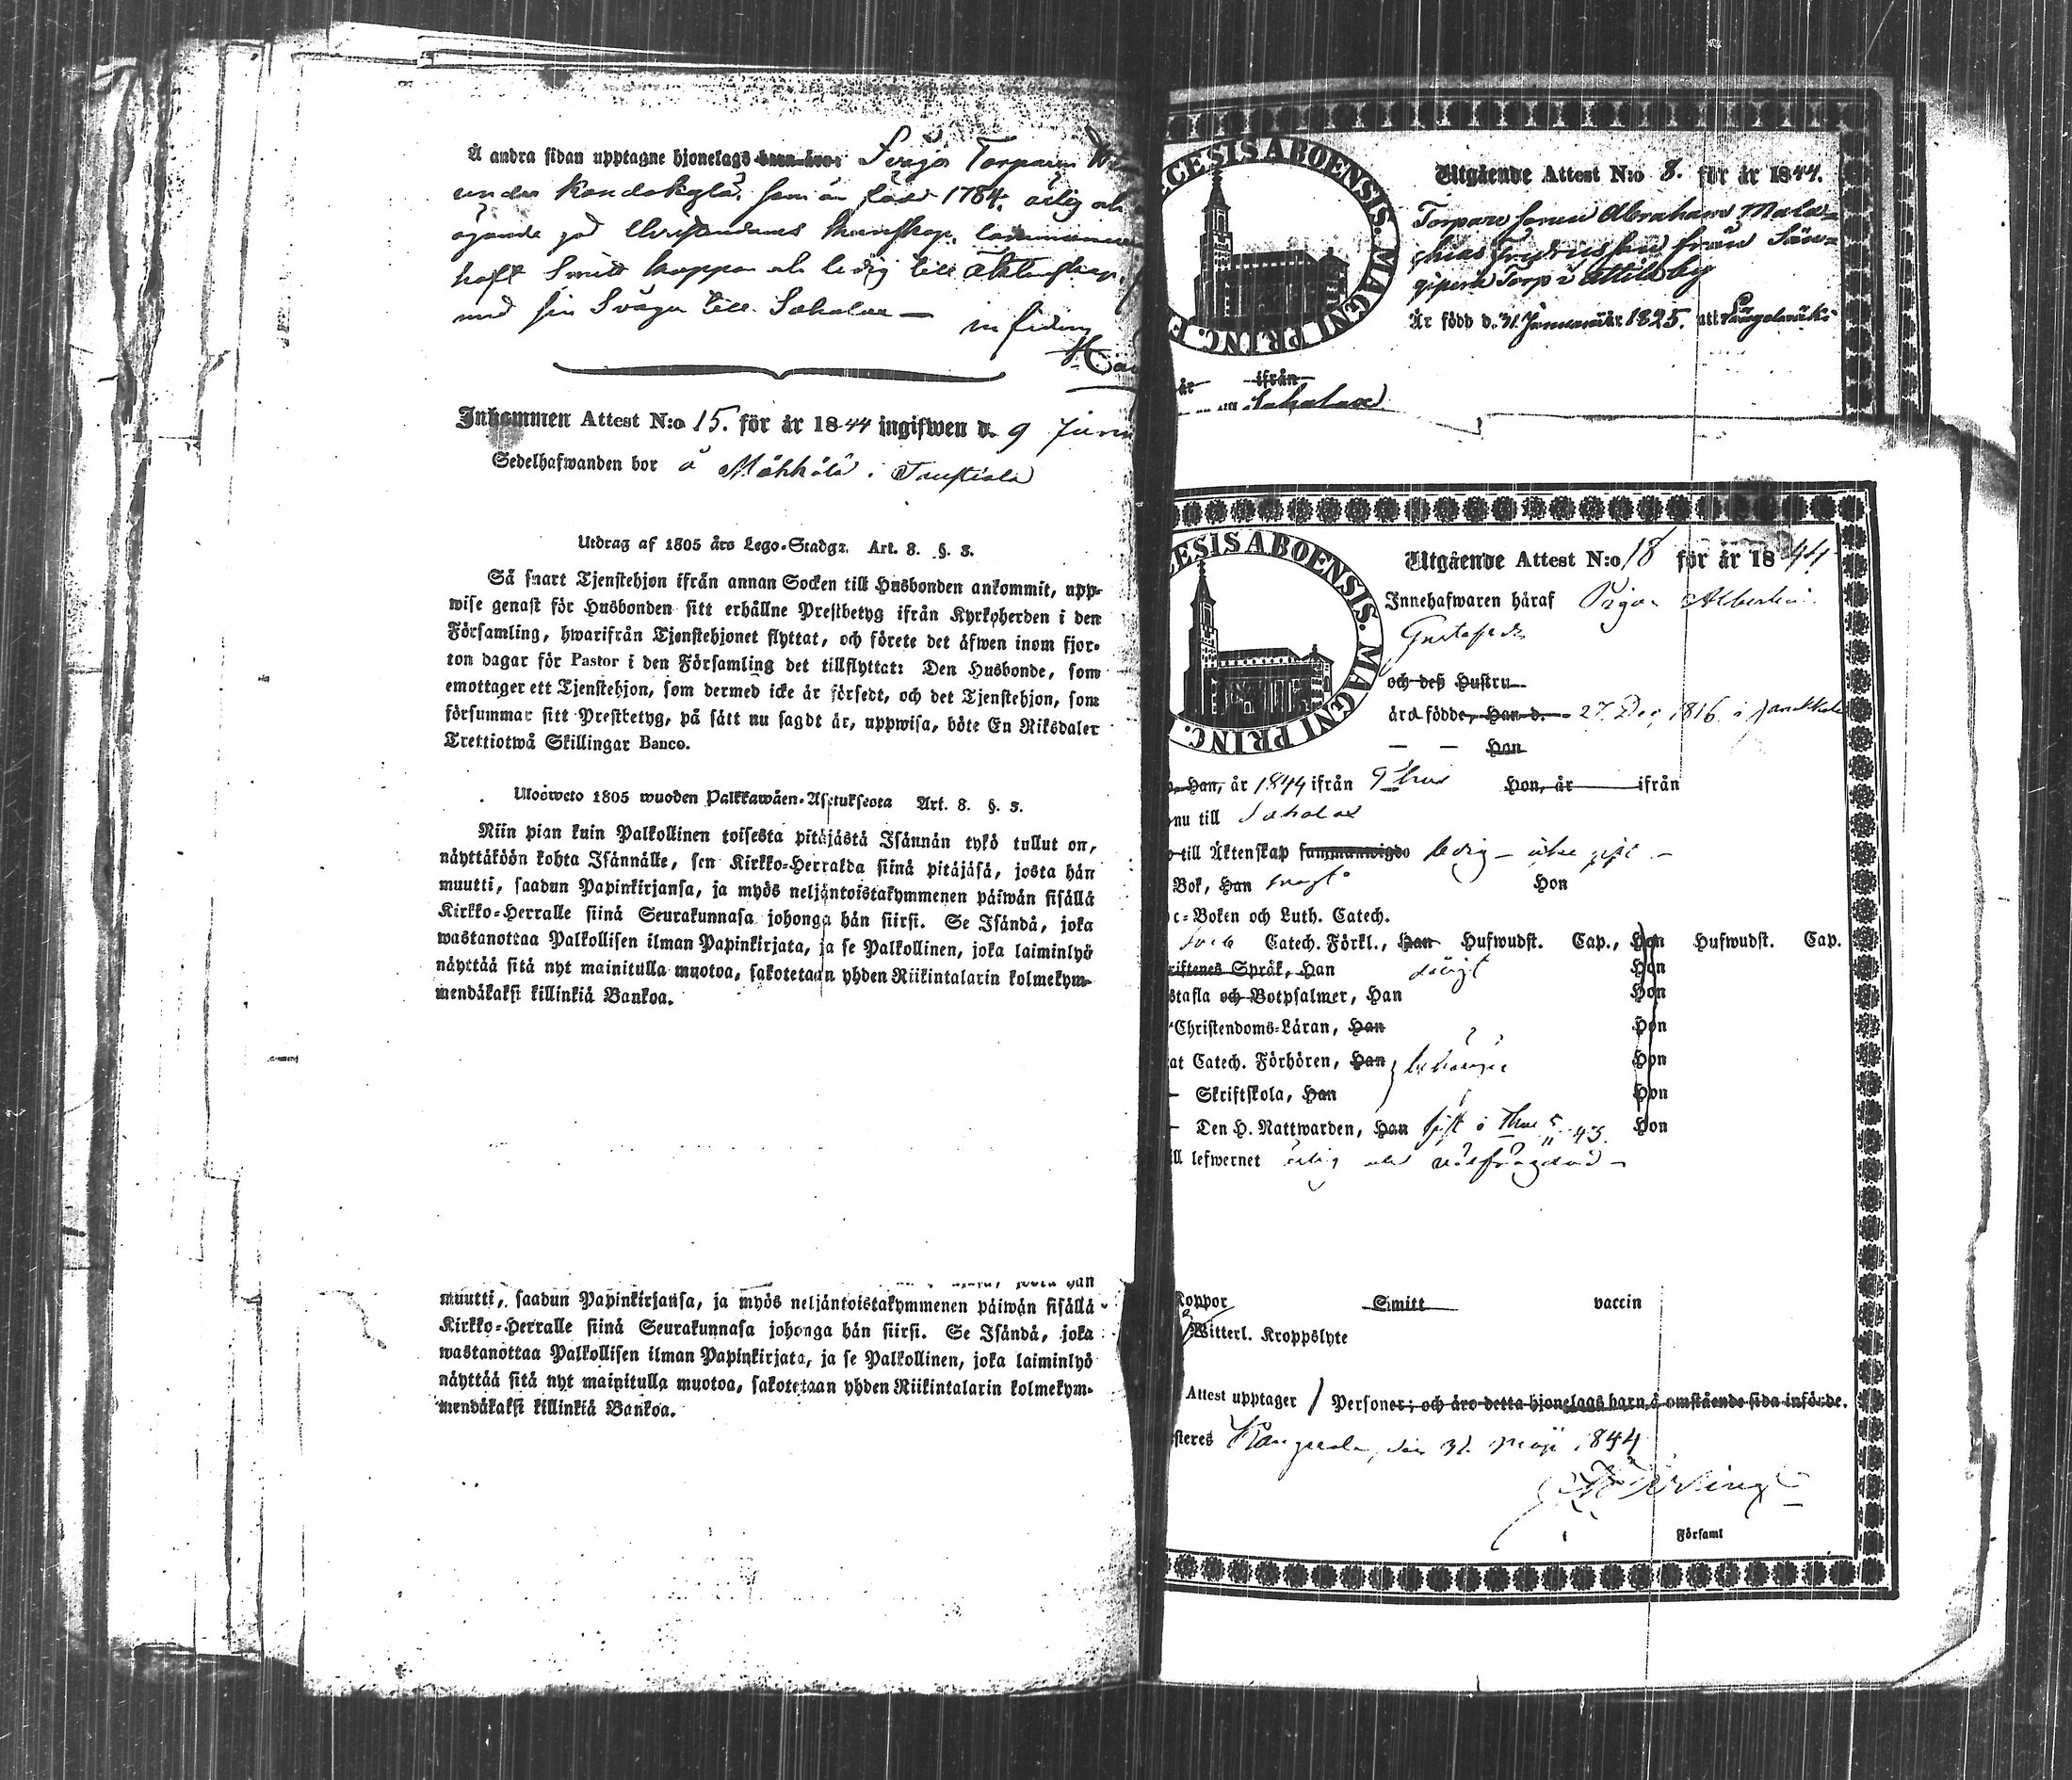 Å andra sidan upptagne hjonelags barn äro: Svåger Torparen
under Kandakylä, som är född 1784, ärlig och
ägande god Christendoms kunskap,
haft Smitt koppor och ledig till Äktenskap,
med sin Svåger till Sahalax — in fidem
Inkommen Attest N:o 15. för år 1844 ingifwen d. 9 Juni
Sedelhafwanden bor å Mökkölä i
Utdrag af 1805 års Lego-Stadga. Art. 8. §. 3.
Så snart Tjenstehjon ifrån annan Socken till Husbonden ankommit, upp-
wise genast för Husbonden sitt erhållne Prestbetyg ifrån Kyrkoherden i den
Församling, hwarifrån Tjenstehjonet flyttat, och förete det äfwen inom fjor-
ton dagar för Pastor i den Församling det tillflyttat: Den Husbonde, som
emottager ett Tjenstehjon, som dermed icke är försedt, och det Tjenstehjon, som
försummar sitt Prestbetyg, på sätt nu sagdt är, uppwisa, böte En Riksdaler
Trettiotwå Skillingar Banco.
Ulosweto 1805 wuoden Palkkawäen-Asetuksesta Art. 8. §. 3.
Niin pian kuin Palkollinen toisesta pitäjästä Isännän tykö tullut on,
näyttäköön kohta Isännälle, sen Kirkko-Herralda siinä pitäjäsä, josta hän
muutti, saadun Papinkirjansa, ja myös neljäntoistakymmenen päiwän sisällä
Kirkko-Herralle siinä Seurakunnasa johonga hän siirsi. Se Isändä, joka
wastanottaa Palkollisen ilman Papinkirjata, ja se Palkollinen, joka laiminlyö
näyttää sitä nyt mainitulla muotoa, sakotetaan yhden Riikintalarin kolmekym-
mendäkaksi killinkiä Bankoa.
josta hän
muutti, saadun Papinkirjansa, ja myös neljäntoistakymmenen päiwän sisällä
Kirkko-Herralle siinä Seurakunnasa johonga hän siirsi. Se Isändä, joka
wastanottaa Palkollisen ilman Papinkirjata, ja se Palkollinen, joka laiminlyö
näyttää sitä nyt mainitulla muotoa, sakotetaan yhden Riikintalarin kolmekym-
mendäkaksi killinkiä Bankoa.
ECESIS ABOENSIS. MAGNI PRINC. F
Utgående Attest N:o 8. för år 1844.
Torpare sonen Abraham Mala-
chias Fredricsson från Sän-
giperä Torp i Attila by
Är född d. 31 Januarii år 1825. uti Längelmäki
år ifrån
Sahalax
ECESIS ABOENSIS. MAGNI PRINC.
Utgående Attest N:o 18 för år 1844
Innehafwaren häraf Pigan Albertina
Gustafsdr
och deß Hustru
äro födde, Han d. 27 Dec 1816 i
Hon
Han, år 1844 ifrån Thus Hon, år ifrån
nu till Sahalax
till Äktenskap sammanwigde ledig
Bok, Han svagt Hon
c-Boken och Luth. Catech.
Catech. Förkl., Han Hufwudst. Cap., Hon Hufwudst. Cap.
riftenes Språk, Han Hon
stafla och Botpsalmer, Han Hon
Christendoms-Läran, Han Hon
at Catech. Förhören, Han Hon
Skriftskola, Han Hon
Den H. Nattwarden, Han sist i Thus 5 43. Hon
ll lefwernet ärlig och wälfrägdad
Koppor Smitt vaccin
Witterl. Kroppslyte
Attest upptager 1 Personer; och äro detta hjonelags barn å omstående sida införde.
steres Kangasala, den 31 Maji 1844
Församl